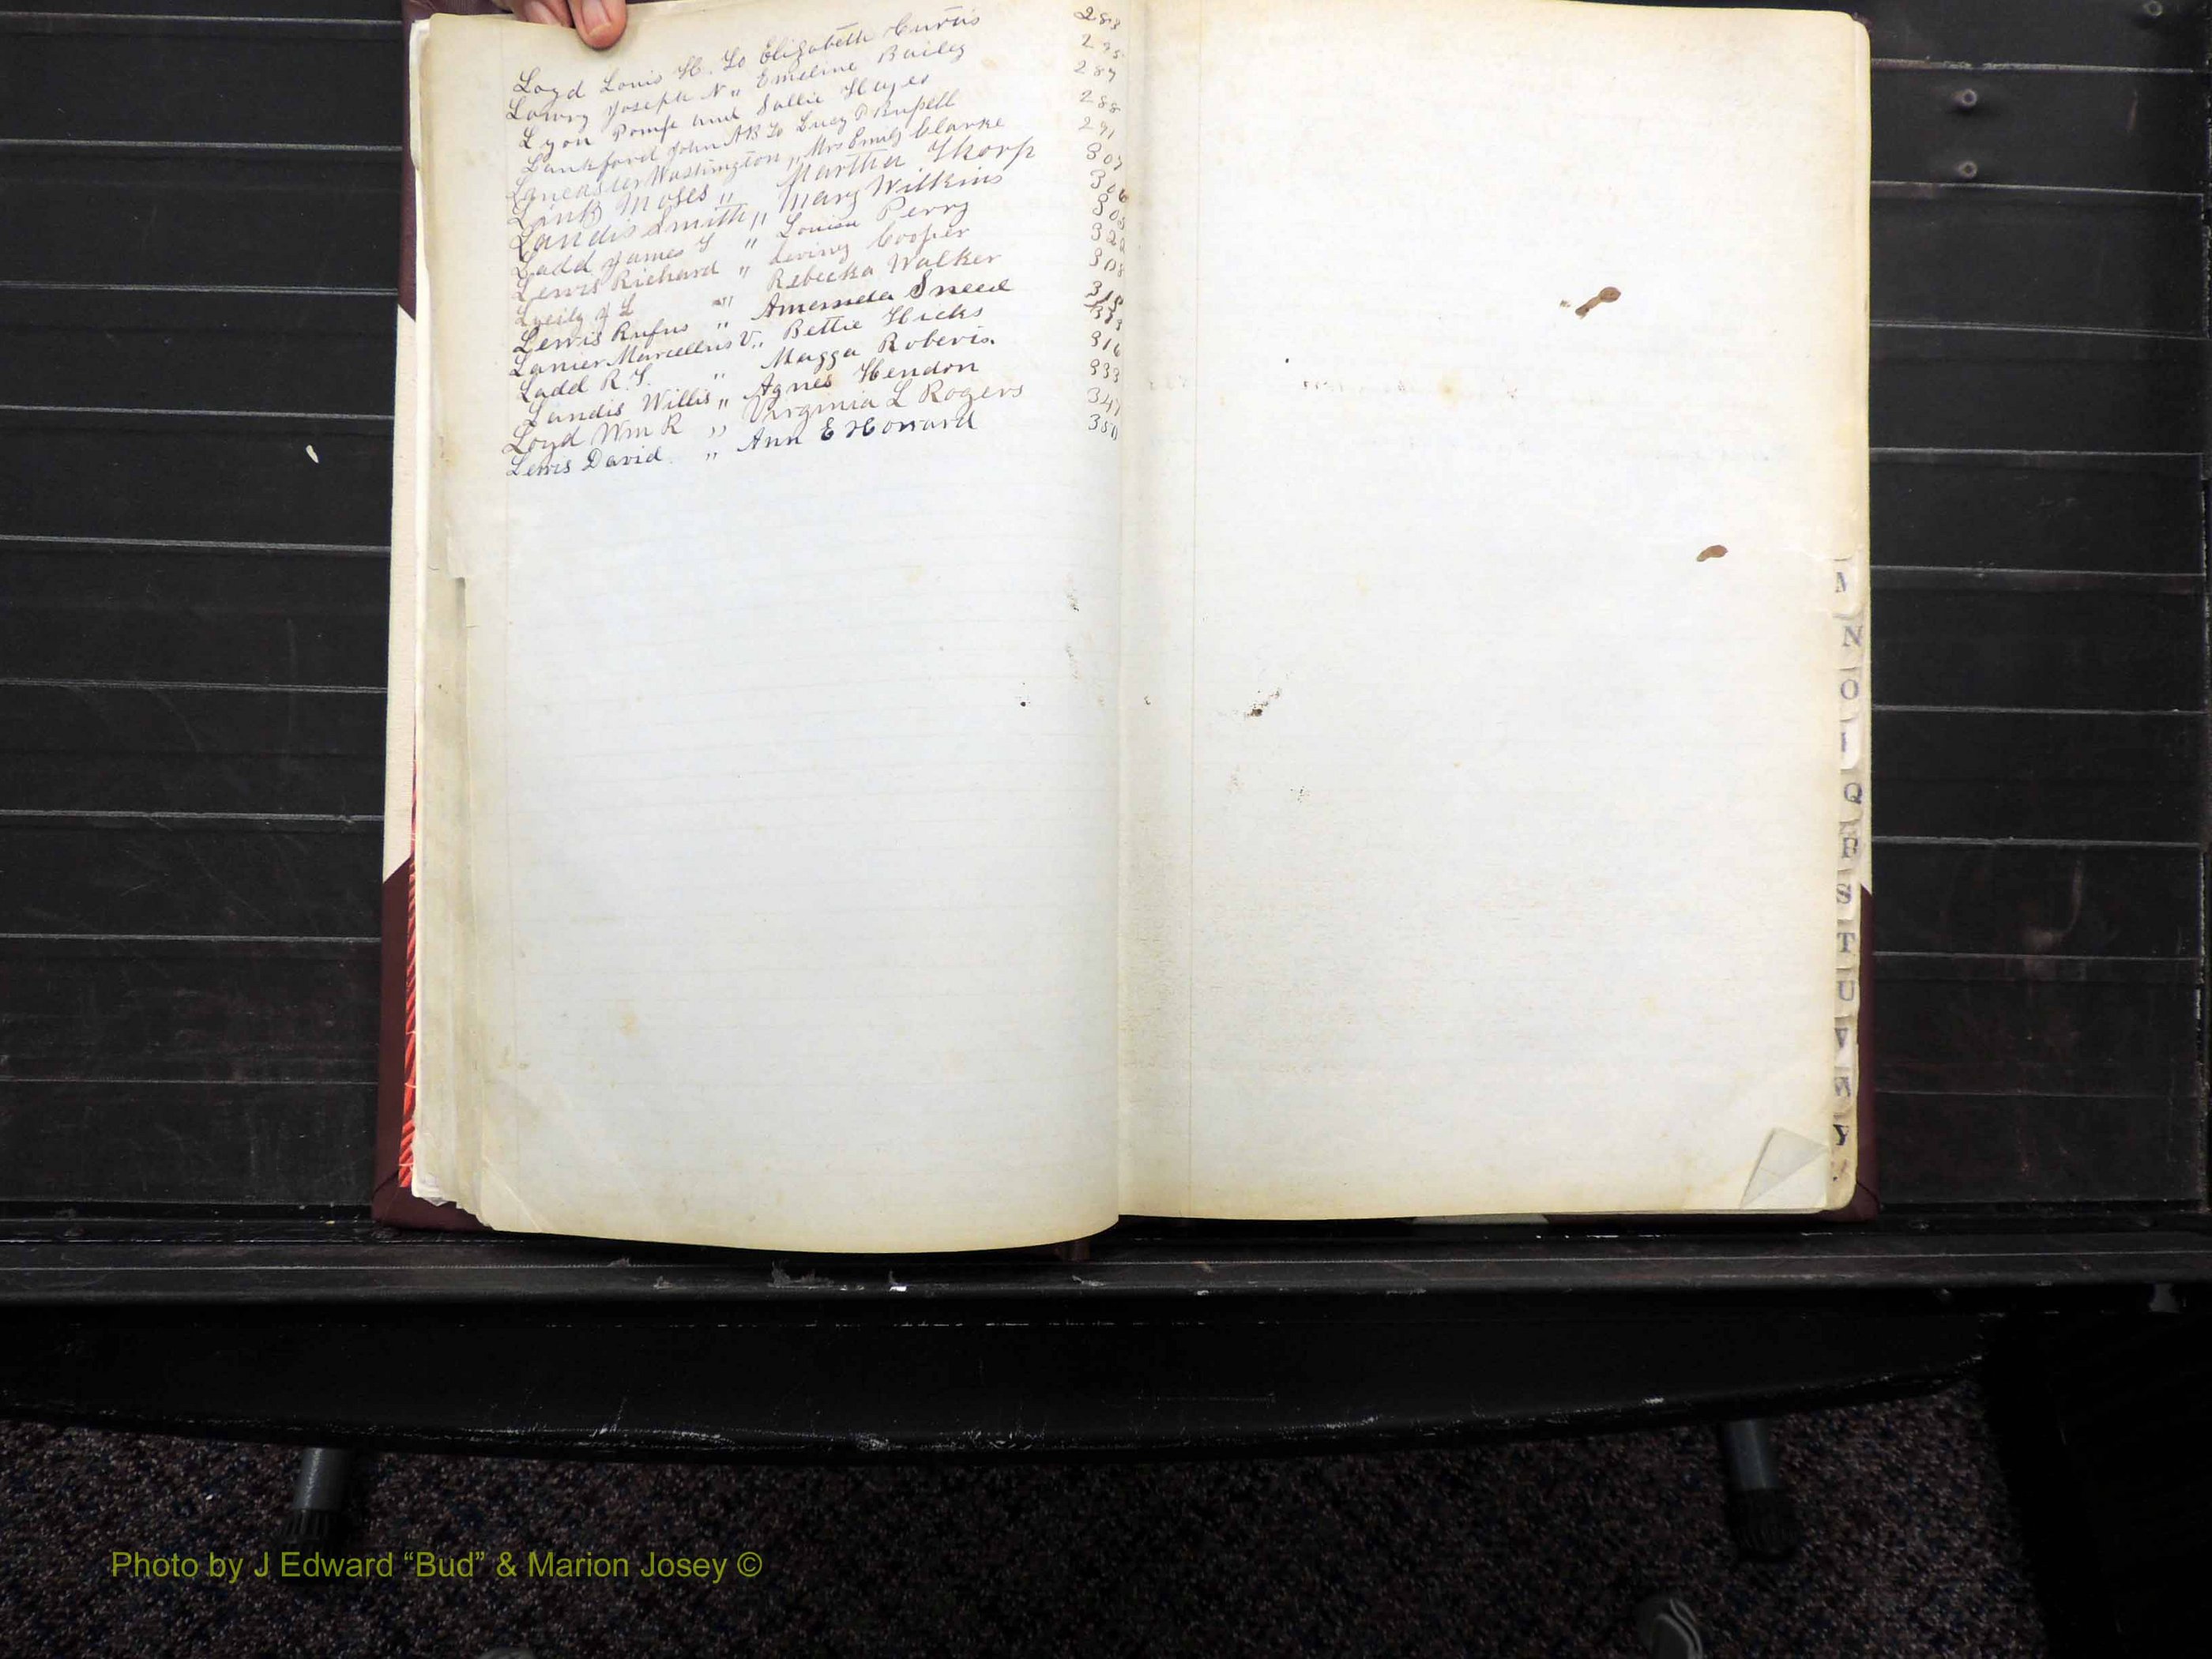 Loyd Louis H. To Elizabeth Curtis 283
Lowry Joseph N " Emeline Bailey 295
Lyon Pomfe and Sallie Hayes 287
Lankford John AB To Lucy P Russell 288
Lancaster Washington " Mrs Emily Clarke 291
Link Moses " Martha Thorp 307
Landis Smith " Mary Wilkins 306
Ladd James Y " Louisa Perry 308
Lewis Richard " Loving Cooper 322
L " Rebecka Walker 308
Lewis Rufus " Amemeda Sneed 318
Lanier Marcellus V. " Bettie Hicks
Ladd R. Y. " Magga Roberts. 316
Landis Willis " Agnes Hendon 333
Loyd Wm R " Virginia L Rogers 347
Lewis David " Ann E Howard 350
M
N
O
Q
R
S
T
U
V
W
Y
Photo by J Edward “Bud” & Marion Josey ©